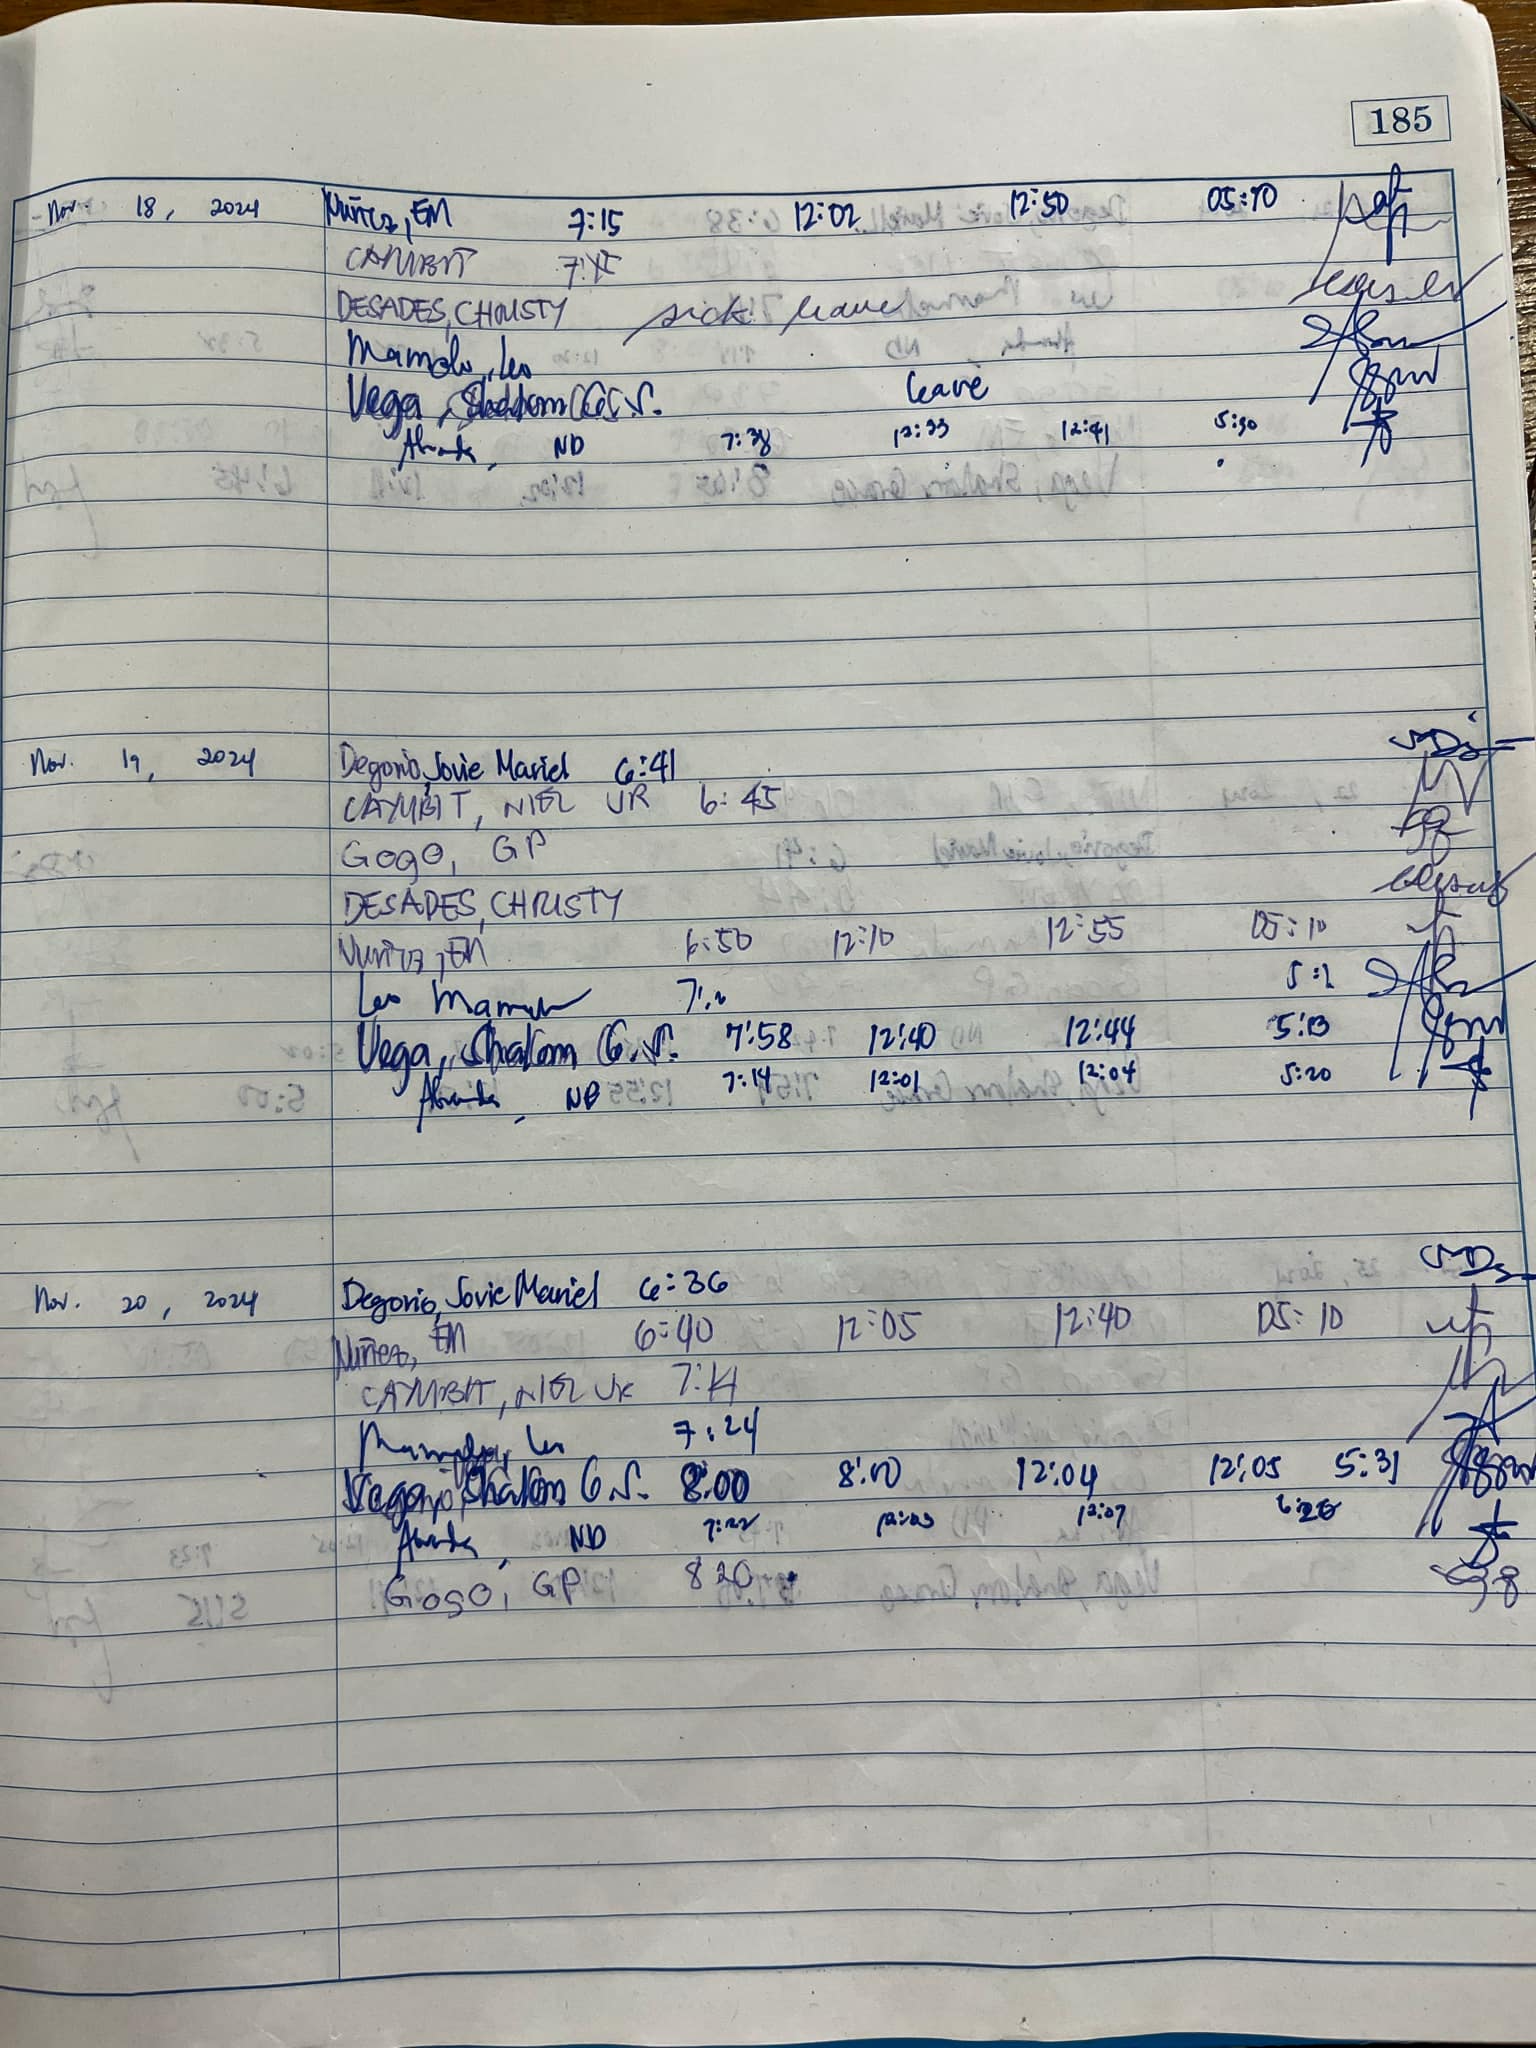 185
Nov. 18, 2024 Nuñez, EM 7:15 12:02 12:50 05:10
CAYMBIT
DESADES, CHRISTY sick leave
Mamolo, Leo
Vega, leave
ND 7:38 12:33 12:41 5:30
Nov. 19, 2024 Degorio, Jovie Mariel 6:41
CAYMBIT, NIEL JR 6:45
Gogo, GP
DESADES, CHRISTY
Nuñez, EM 6:50 12:10 12:55 05:10
Leo
Vega, Shalom G.S. 7:58 12:40 12:44 5:13
7:14 12:01 12:04 5:20
Nov. 20, 2024 Degorio, Jovie Mariel 6:36
Nuñez, EM 6:40 12:05 12:40 05:10
CAYMBIT, NIEL JR 7:14
Leo 7:24
Vega, Shalom G.S. 8:00 8:00 12:04 12:05 5:31
ND 7:22 12:03 12:07
Gogo, GP 8 20